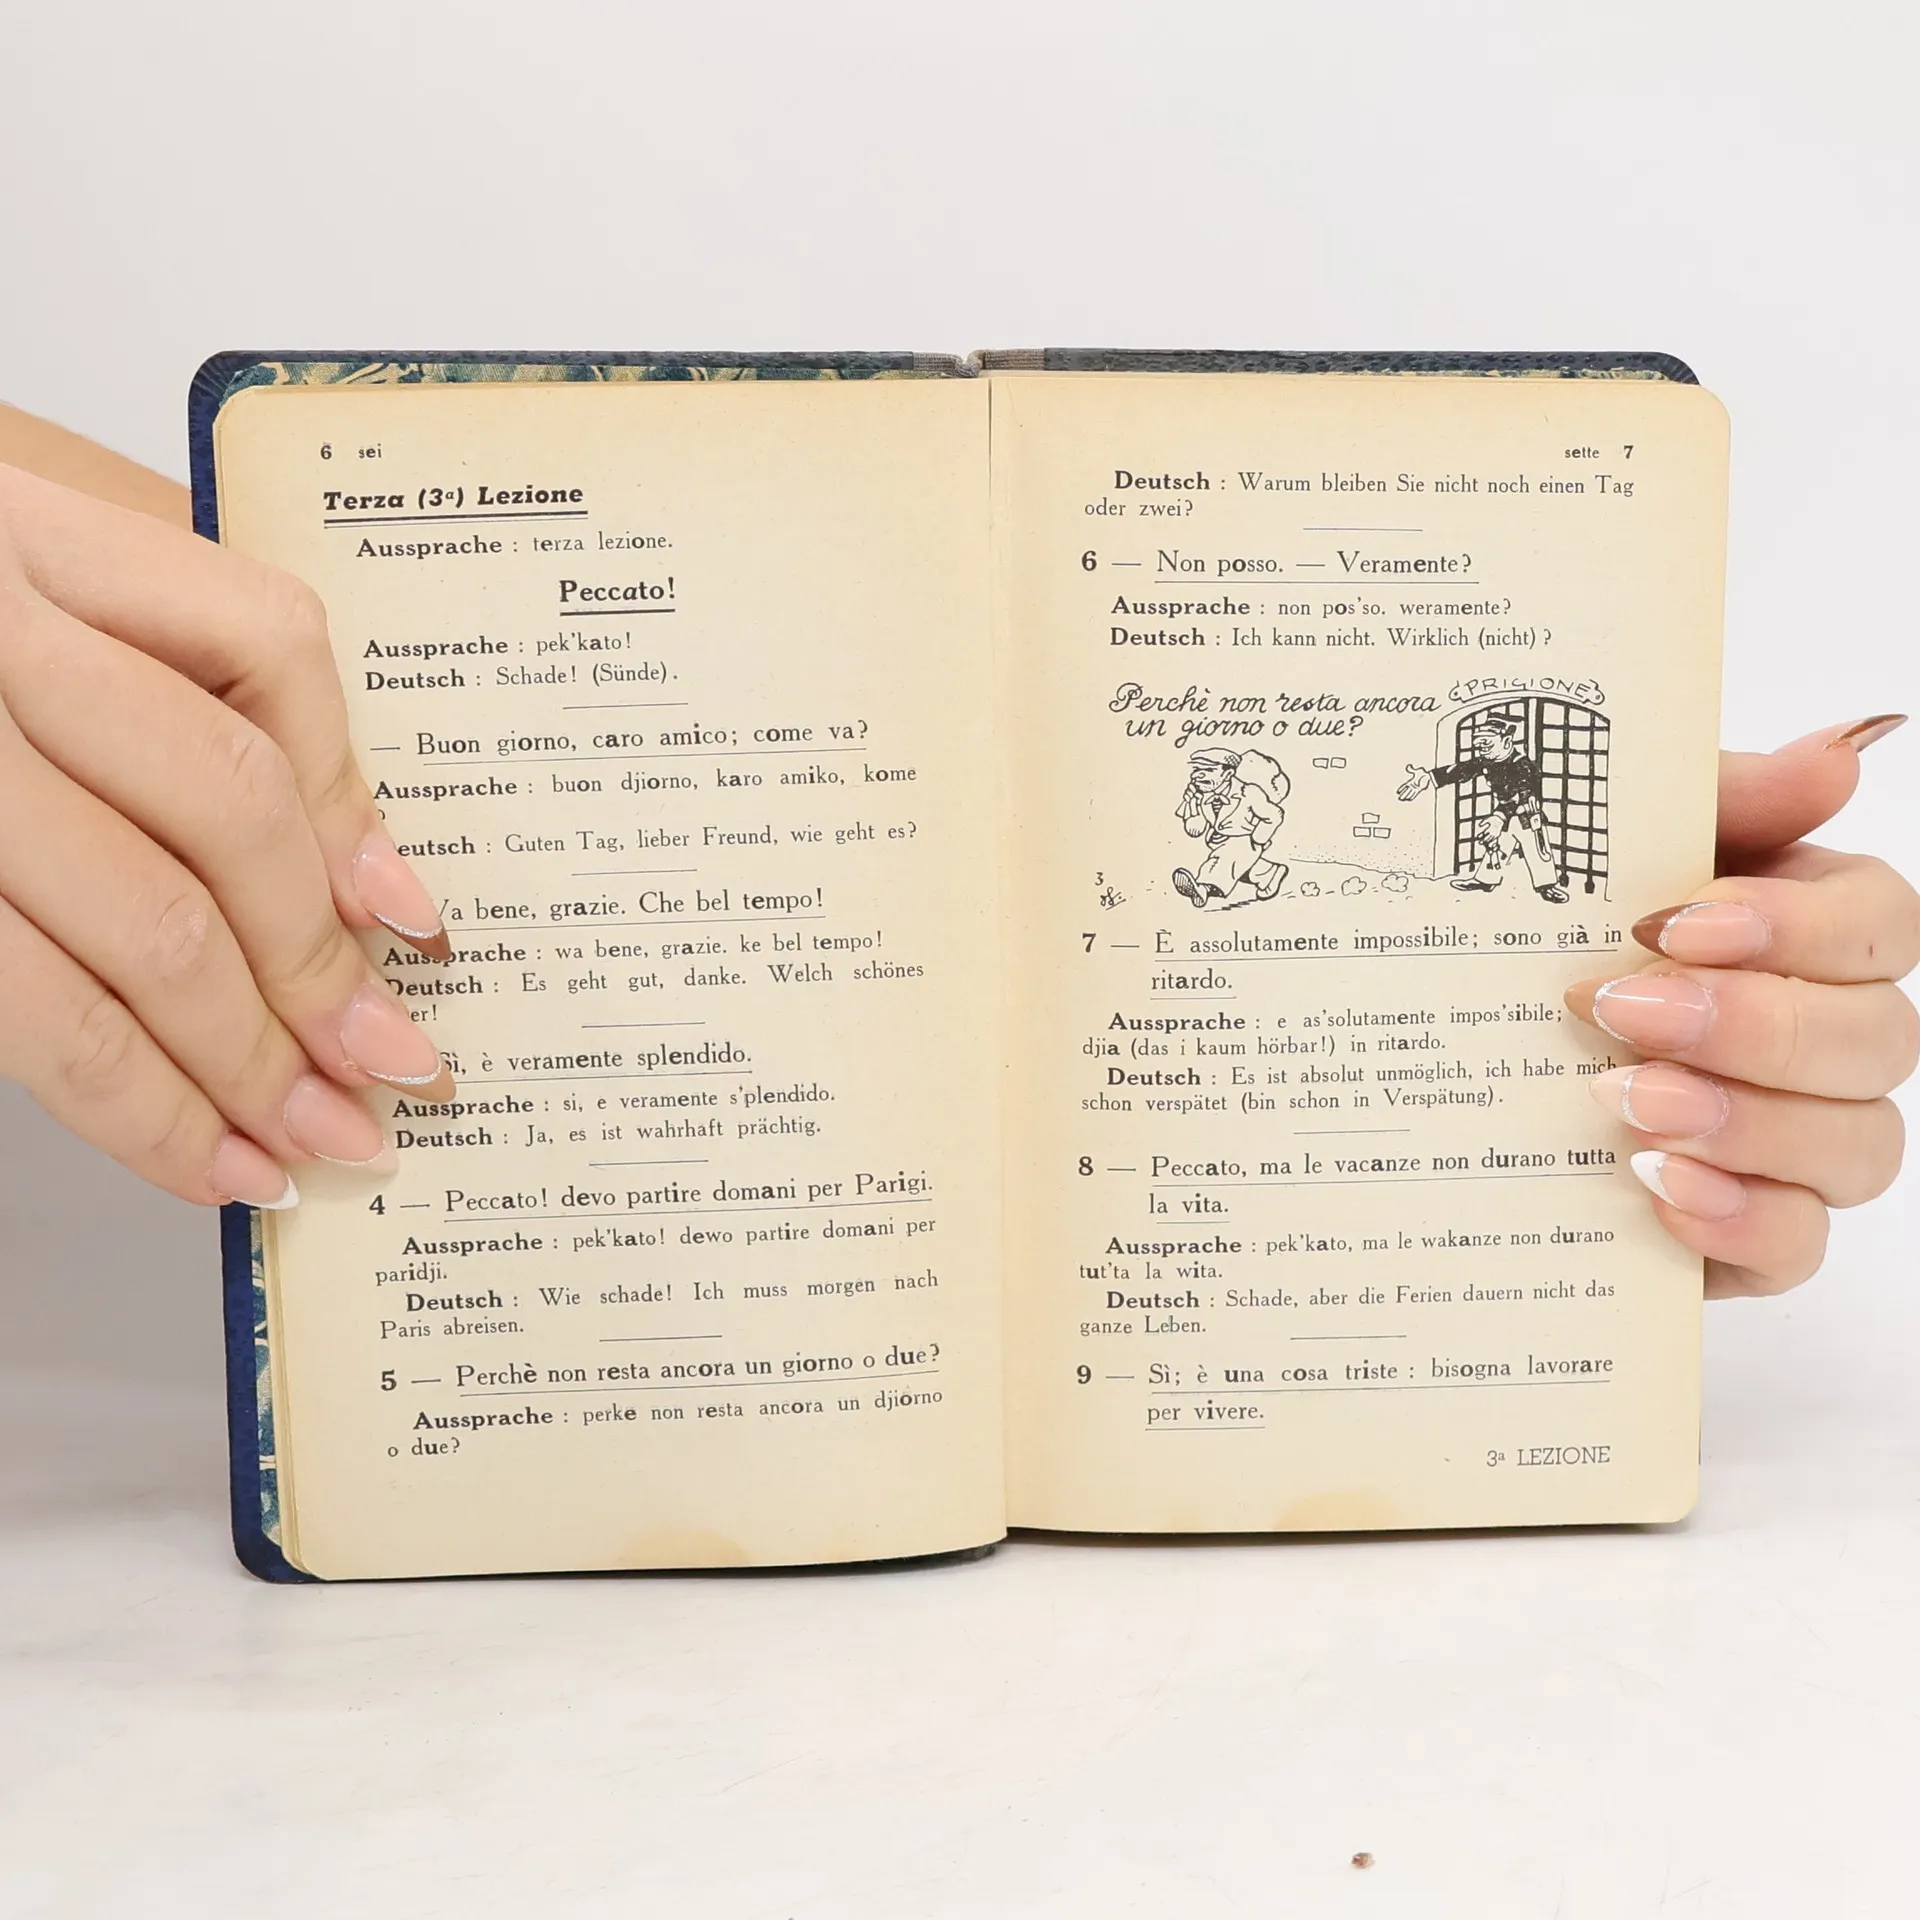 6 sei
Terza (3ª) Lezione
Aussprache : terza lezione.
Peccato!
Aussprache : pek'kato!
Deutsch : Schade! (Sünde).
— Buon giorno, caro amico; come va?
Aussprache : buon djiorno, karo amiko, kome
eutsch : Guten Tag, lieber Freund, wie geht es?
a bene, grazie. Che bel tempo!
Aussprache : wa bene, grazie. ke bel tempo!
Deutsch : Es geht gut, danke. Welch schönes
er!
Sì, è veramente splendido.
Aussprache : si, e veramente s'plendido.
Deutsch : Ja, es ist wahrhaft prächtig.
4 — Peccato! devo partire domani per Parigi.
Aussprache : pek'kato! dewo partire domani per
paridji.
Deutsch : Wie schade! Ich muss morgen nach
Paris abreisen.
5 — Perchè non resta ancora un giorno o due?
Aussprache : perke non resta ancora un djiorno
o due?
sette 7
Deutsch : Warum bleiben Sie nicht noch einen Tag
oder zwei?
6 — Non posso. — Veramente?
Aussprache : non pos'so. weramente?
Deutsch : Ich kann nicht. Wirklich (nicht) ?
PRIGIONE
Perchè non resta ancora
un giorno o due?
3
7 — È assolutamente impossibile; sono già in
ritardo.
Aussprache : e as'solutamente impos'sibile;
djia (das i kaum hörbar!) in ritardo.
Deutsch : Es ist absolut unmöglich, ich habe mich
schon verspätet (bin schon in Verspätung).
8 — Peccato, ma le vacanze non durano tutta
la vita.
Aussprache : pek'kato, ma le wakanze non durano
tut'ta la wita.
Deutsch : Schade, aber die Ferien dauern nicht das
ganze Leben.
9 — Sì; è una cosa triste : bisogna lavorare
per vivere.
3ª LEZIONE